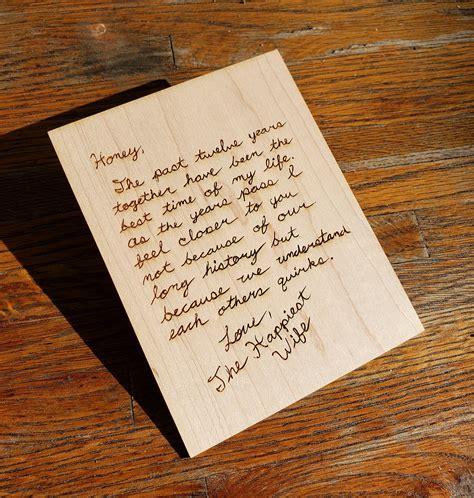 Honey,
The past twelve years
together have been the
best time of my life.
as the years pass I
feel closer to you
not because of our
long history but
because we understand
each others quirks.
Love,
The Happiest
Wife